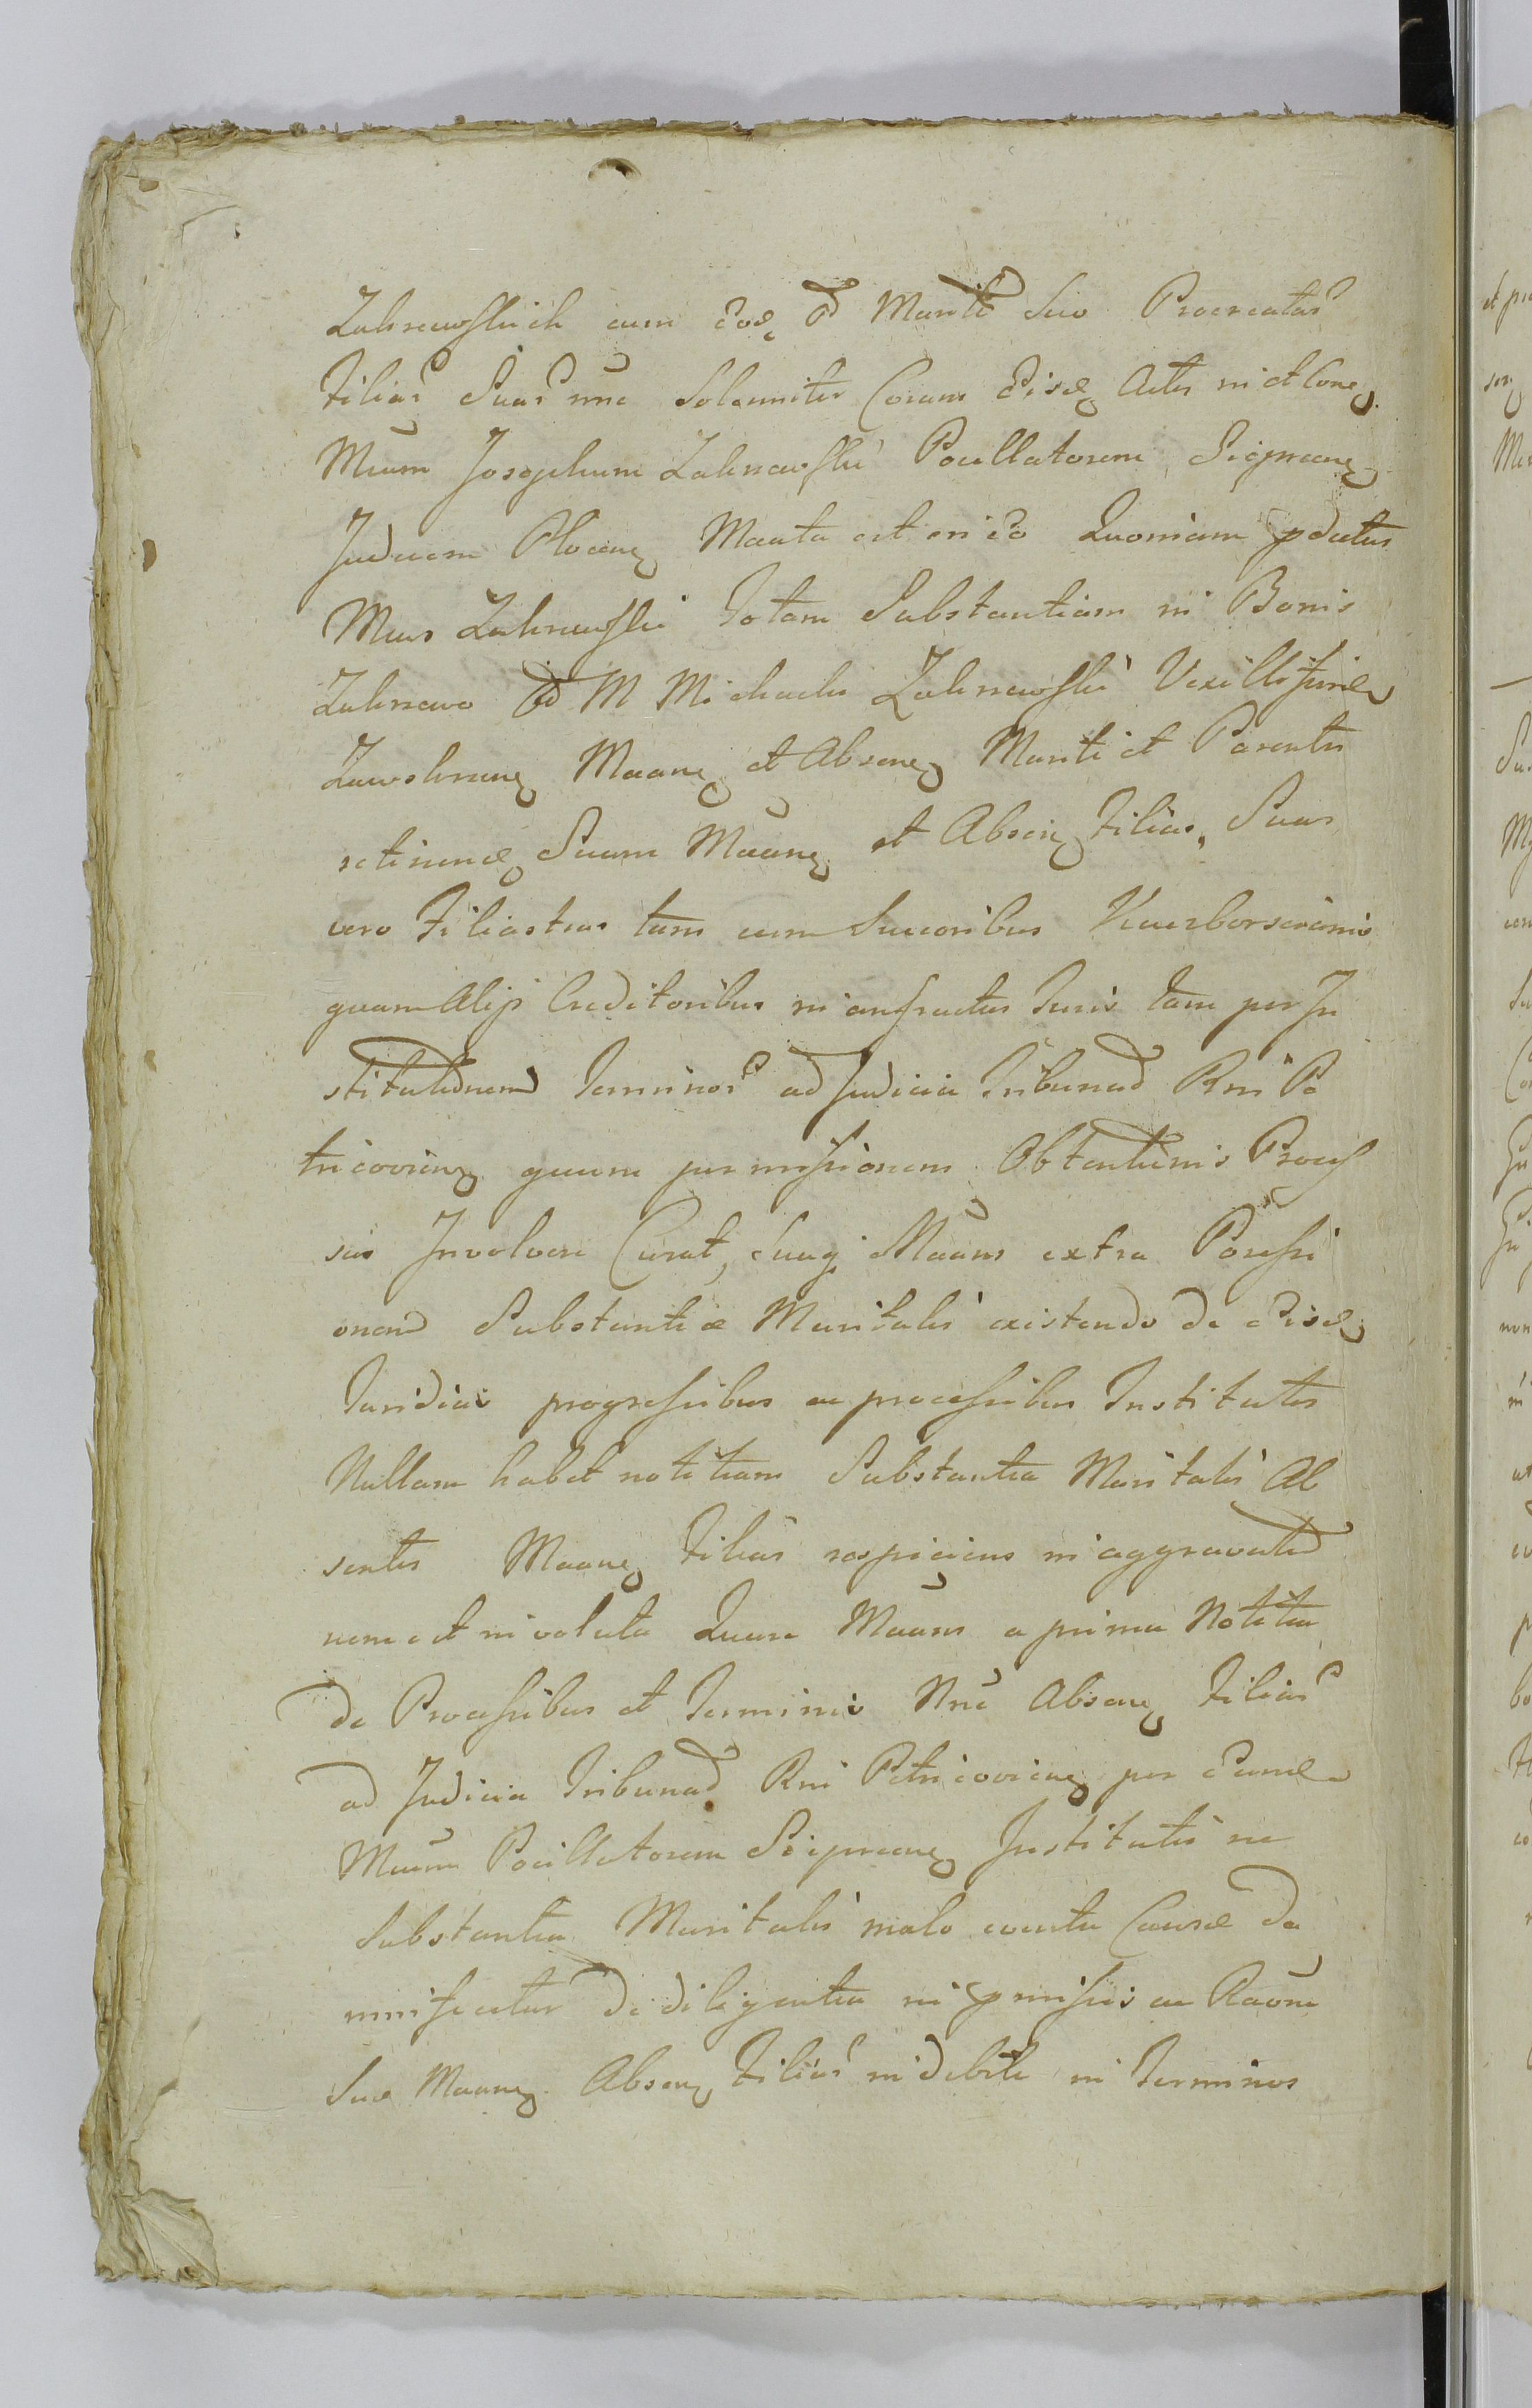 Zakrzewskich cum eod. O͂ Marito Suo Procreatas
Filias Suas nn̄c Solenniter Coram Eisd. Actis in et Con.
Mcum Josephum Zakrzewski Pocillatorem Sierpcen.
Judicem Plocen. Maāta est in eo Quoniam pdictus
Mcus Zakrzewski Totam Substantiam in Bonis
Zakrzewo O͂ M Michaelis Zakrzewski Vexilliferid.
Zawskrzen. Maan. et Absen. Mariti et Parentis
retinend. Suam Maan. et Absen. Filias, Suas
vero Filiastras tam cum Succoribus
quam Alijs Creditoribus in anfractus Juris tam per In
stitutionem Terminos ad Judicia Tribunal Rni Pe
tricovien. quam per missionem Obtentionis Proces
sus Involvere Curat, Suaq. Maans extra Possessi
onem Substantiæ Maritalis existendo de Eisd.
Juridicis progressibus ac processibus Institutis
Nullam habet notitiam Substantia Maritalis Ab
sentis Maan. Filias respiciens in aggravatio
nem est involuta Quare Maans a prima Notitia
de Processibus et Terminis Nnē Absen. Filias
ad Judicia Tribunal Rni Petricovien. per Eund.
Mcum Pocillatorem Sierpcen. Institutis ne
Substantia Maritalis malo eventu Causæ da
mnificetur de diligentia in pmissis ac Raōne
Sua Maan. Absen. Filias indebite in Terminos